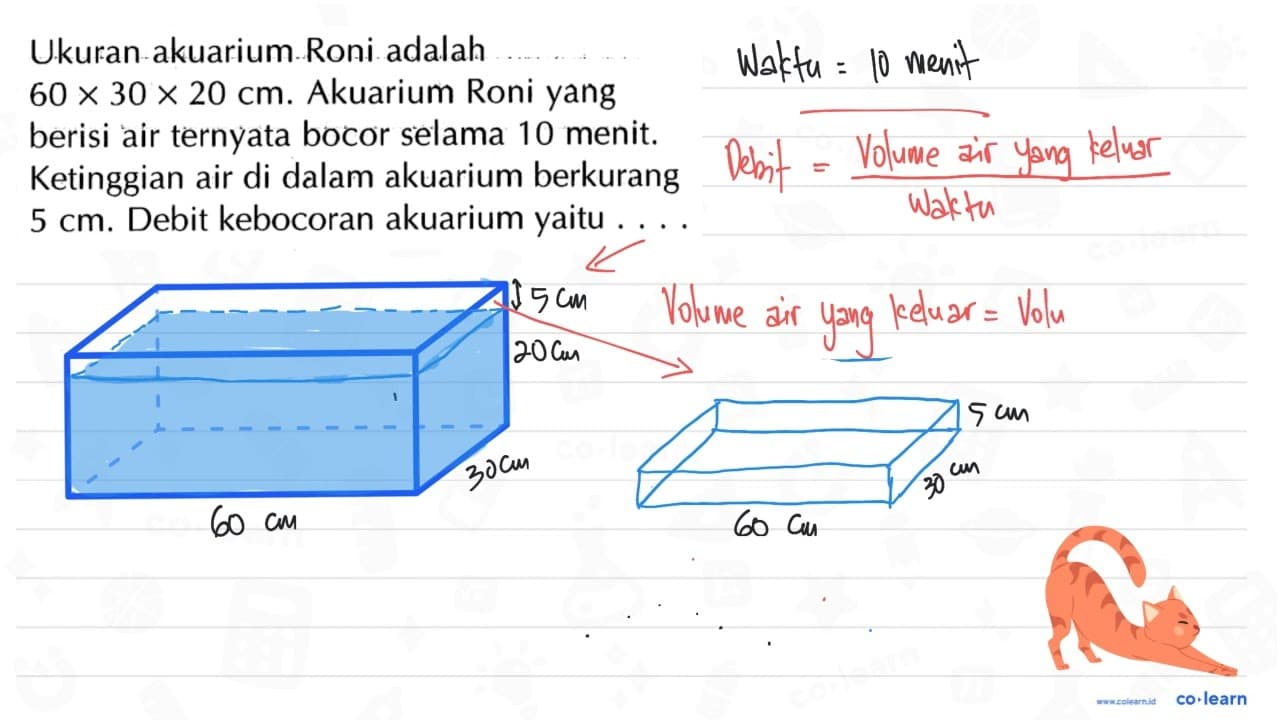 Ukuran akuarium Roni adalah
60 × 30 × 20 cm. Akuarium Roni yang
berisi air ternyata bocor selama 10 menit.
Ketinggian air di dalam akuarium berkurang
5 cm. Debit kebocoran akuarium yaitu . . . .
Waktu = 10 menit
Debit = Volume air yang keluar
Waktu
Volume air yang keluar = Volu
5 cm
20 cm
30 cm
60 cm
5 cm
30 cm
60 cm
www.colearn.id
co·learn